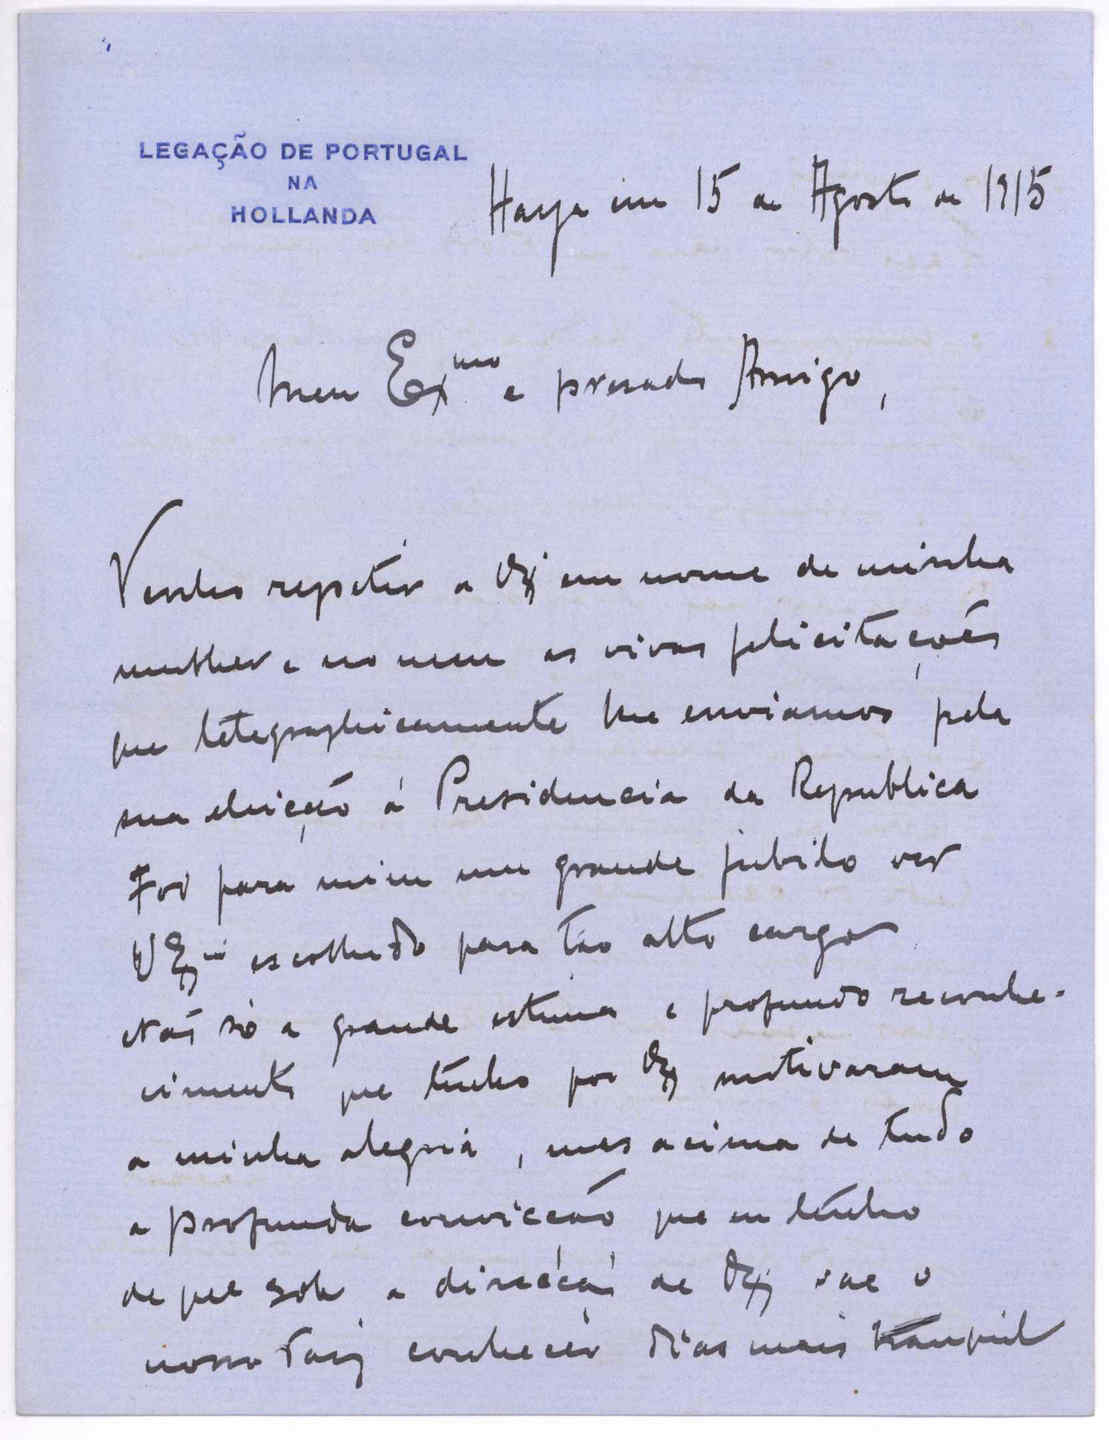 LEGAÇÃO DE PORTUGAL
NA
HOLLANDA
Haya em 15 de Agosto de 1915
Meu Exmo e presado Amigo,
Venho repetir a VEx em nome de minha
mulher e no meu as vivas felicitações
que telegraphicamente lhe enviamos pela
sua eleição á Presidencia da Republica
Foi para mim um grande jubilo ver
VExcia escolhido para tão alto cargo
Não só a grande estima e profundo reconhe-
cimento que tenho por VEx motivaram
a minha alegria, mas acima de tudo
a profunda convicção que eu tenho
de que sob a direcção de VEx vae o
nosso Paiz conhecer dias mais tranquil